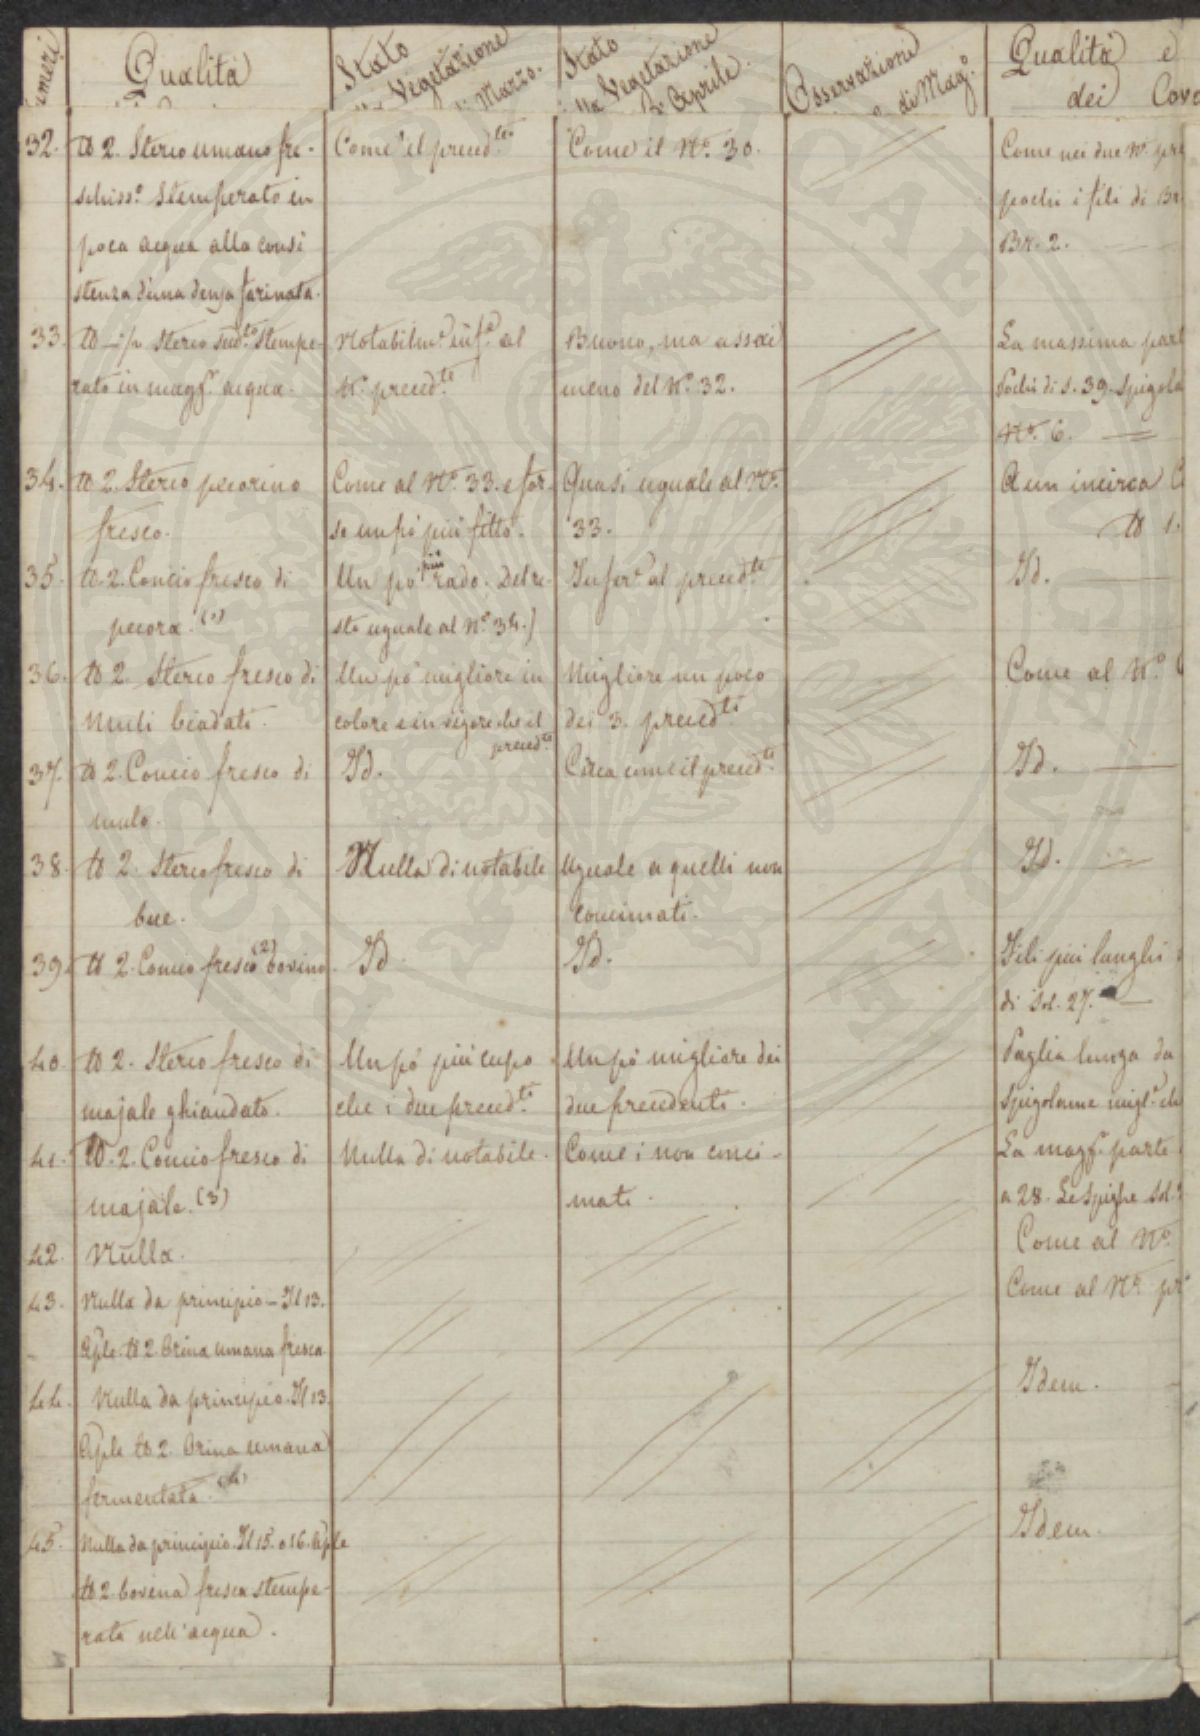 Qualità
Stato
Vegetazione
di Marzo.
Stato
Vegetazione
Aprile.
Osservazione
di Mag.o
Qualità e
dei Cov
32. ℔ 2. Sterco umano fre-
schiss.o Stemperato in
poca acqua alla consi
stenza d'una densa farinata.
Come il preced.te
Come il N.o 30.
Come nei due N.i
pochi i fili di
Br. 2.
33. ℔ Sterco sud.to Stempe-
rato in magg.r acqua.
Notabilm.e inf.e al
N.o preced.te
Buono, ma assai
meno del N.o 32.
La massima part
Pochi di s. 39. Spigola
N.o 6.
34. ℔ 2. Sterco pecorino
fresco.
Come al N.o 33. e for-
se un pò più fitto.
Quasi uguale al N.o
33.
A un incirca
℔ 1.
35. ℔ 2. Concio fresco di
pecora. (1)
Un pò più rado. Del re-
sto uguale al N.o 34.
Infer.e al preced.te
Id.
36. ℔ 2. Sterco fresco di
Muli biadati.
Un pò migliore in
colore e in vigore che il
preced.te
Migliore un poco
dei 3. preced.ti
Come al N.o
37. ℔ 2. Concio fresco di
mulo.
Id.
Circa come il preced.te
Id.
38. ℔ 2. Sterco fresco di
bue.
Nulla di notabile
Uguale a quelli non
concimati.
Id.
39. ℔ 2. Concio fresco (2) bovino
Id.
Id.
Fili più lunghi
di Sol. 27.
40. ℔ 2. Sterco fresco di
majale ghiandato.
Un pò più cupo
che i due preced.ti
Un pò migliore dei
due precedenti.
Paglia lunga da
Spigolame migl.e
41. ℔ 2. Concio fresco di
majale. (3)
Nulla di notabile.
Come i non conci-
mati.
La magg.r parte
a 28. Le Spighe Sol.
42. Nulla.
Come al N.o
43. Nulla da principio - Il 13.
Aple. ℔ 2. Orina umana fresca
Come al N.o
44. Nulla da principio. Il 13.
Aple ℔ 2. Orina umana
fermentata. (4)
Idem.
45. Nulla da principio. Il 15. o 16. Aple
℔ 2. bovina fresca stempe-
rata nell'acqua.
Idem.